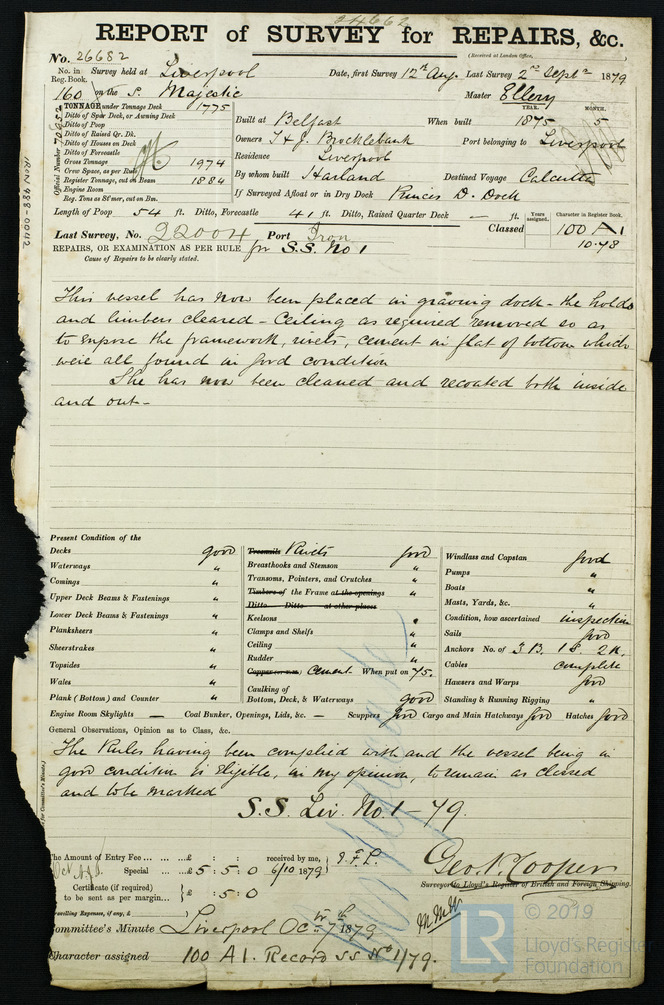 24662
REPORT of SURVEY for REPAIRS, &c.
(Received at London Office,
No. 26682
No. in Reg. Book. Survey held at Liverpool Date, first Survey 12th Aug. Last Survey 2nd Septr 1879
160 on the S. Majestic Master Ellery
TONNAGE under Tonnage Deck 1775
Ditto of Spar Deck, or Awning Deck
Ditto of Poop
Ditto of Raised Qr. Dk.
Ditto of Houses on Deck
Ditto of Forecastle
Gross Tonnage 1974
Crew Space, as per Rule
Register Tonnage, cut on Beam 1884
Engine Room
Reg. Tons as St'mer, cut on Bm.
Official Number
IRON 988-0042
YEAR. MONTH.
Built at Belfast When built 1875 5
Owners T & J. Brocklebank Port belonging to Liverpool
Residence Liverpool
By whom built Harland Destined Voyage Calcutta
If Surveyed Afloat or in Dry Dock Princes D. Dock
Length of Poop 54 ft. Ditto, Forecastle 41 ft. Ditto, Raised Quarter Deck — ft.
Years assigned. Character in Register Book.
Classed 100 A1
10.78
Last Survey, No. 22004 Port Iron
REPAIRS, OR EXAMINATION AS PER RULE for S.S. No 1
Cause of Repairs to be clearly stated.
This vessel has now been placed in graving dock – the holds
and limbers cleared – Ceiling as required removed so as
to expose the framework, rivets, cement in flat of bottom which
were all found in good condition
She has now been cleaned and recoated both inside
and out –
Present Condition of the
Decks good
Waterways "
Comings "
Upper Deck Beams & Fastenings "
Lower Deck Beams & Fastenings "
Planksheers "
Sheerstrakes "
Topsides "
Wales "
Plank (Bottom) and Counter "
Treenails Rivets good
Breasthooks and Stemson "
Transoms, Pointers, and Crutches "
Timbers of the Frame at the openings "
Ditto Ditto at other places
Keelsons "
Clamps and Shelfs "
Ceiling "
Rudder "
Copper (or Y.M.) Cement. When put on 75.
Caulking of
Bottom, Deck, & Waterways good
Windlass and Capstan good
Pumps "
Boats "
Masts, Yards, &c. "
Condition, how ascertained inspection
Sails good
Anchors No. of 3 B. 1 S. 2 K.
Cables complete
Hawsers and Warps good
Standing & Running Rigging "
Engine Room Skylights — Coal Bunker, Openings, Lids, &c. — Scuppers good Cargo and Main Hatchways good Hatches good
General Observations, Opinion as to Class, &c.
The Rules having been complied with and the vessel being in
good condition is eligible, in my opinion, to remain as classed
and to be marked
S.S. Liv. No. 1 – 79.
The Amount of Entry Fee ... ... ... £ : : received by me,
Special ... ... £ 5 : 5 : 0 6/10 1879
Certificate (if required) to be sent as per margin... £ : 5 : 0
Travelling Expenses, if any, £
Geo. N. Cooper
Surveyor to Lloyd's Register of British and Foreign Shipping.
Committee's Minute Liverpool Oct 7 1879
Character assigned 100 A1. Record SS No 1/79.
LR
© 2019
Lloyd's Register
Foundation